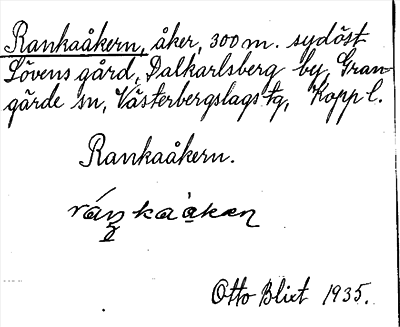 Rankaåkern, åker, 300 m. sydöst
Lövens gård, Dalkarlsberg by, Gran-
gärde sn, Västerbergslags tg, Kopp l.
Rankaåkern.
Otto Blixt 1935.